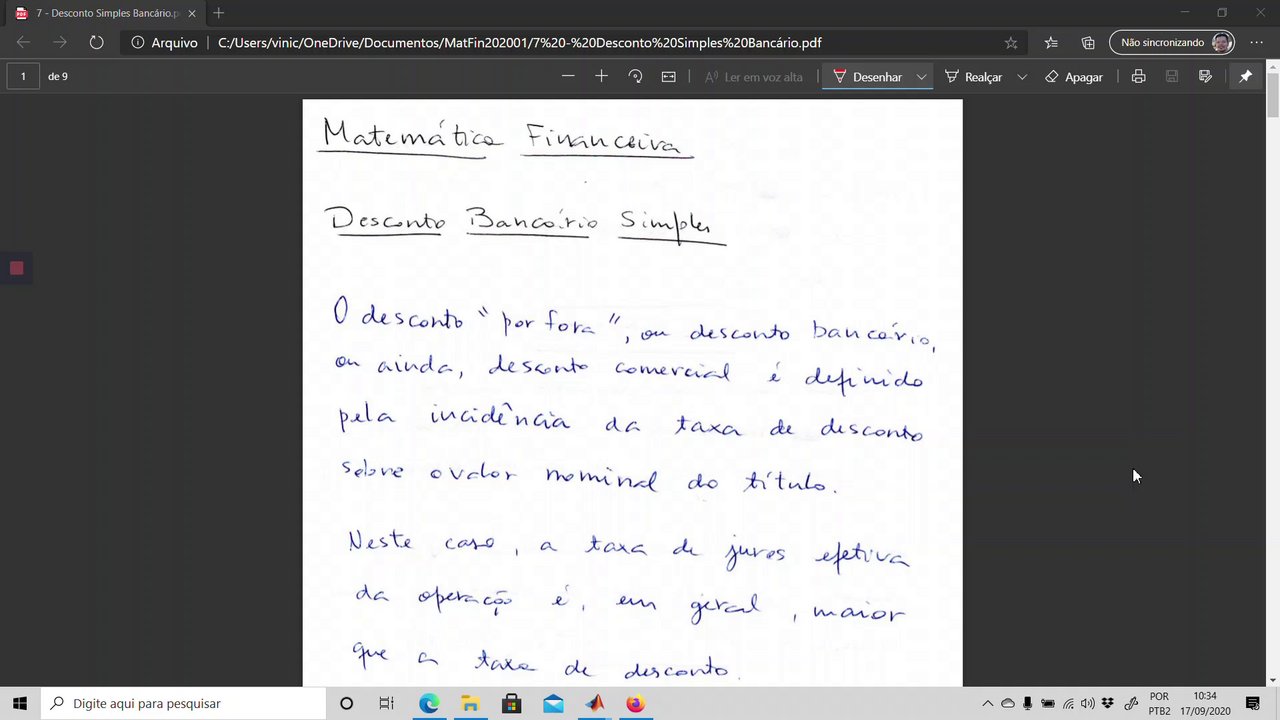 7 - Desconto Simples Bancário.p
Arquivo
C:/Users/vinic/OneDrive/Documentos/MatFin202001/7%20-%20Desconto%20Simples%20Bancário.pdf
Não sincronizando
1 de 9
Ler em voz alta
Desenhar
Realçar
Apagar
Matemática Financeira
Desconto Bancário Simples
O desconto "por fora", ou desconto bancário,
ou ainda, desconto comercial é definido
pela incidência da taxa de desconto
sobre o valor nominal do título.
Neste caso, a taxa de juros efetiva
da operação é, em geral, maior
que a taxa de desconto.
Digite aqui para pesquisar
POR
PTB2
10:34
17/09/2020